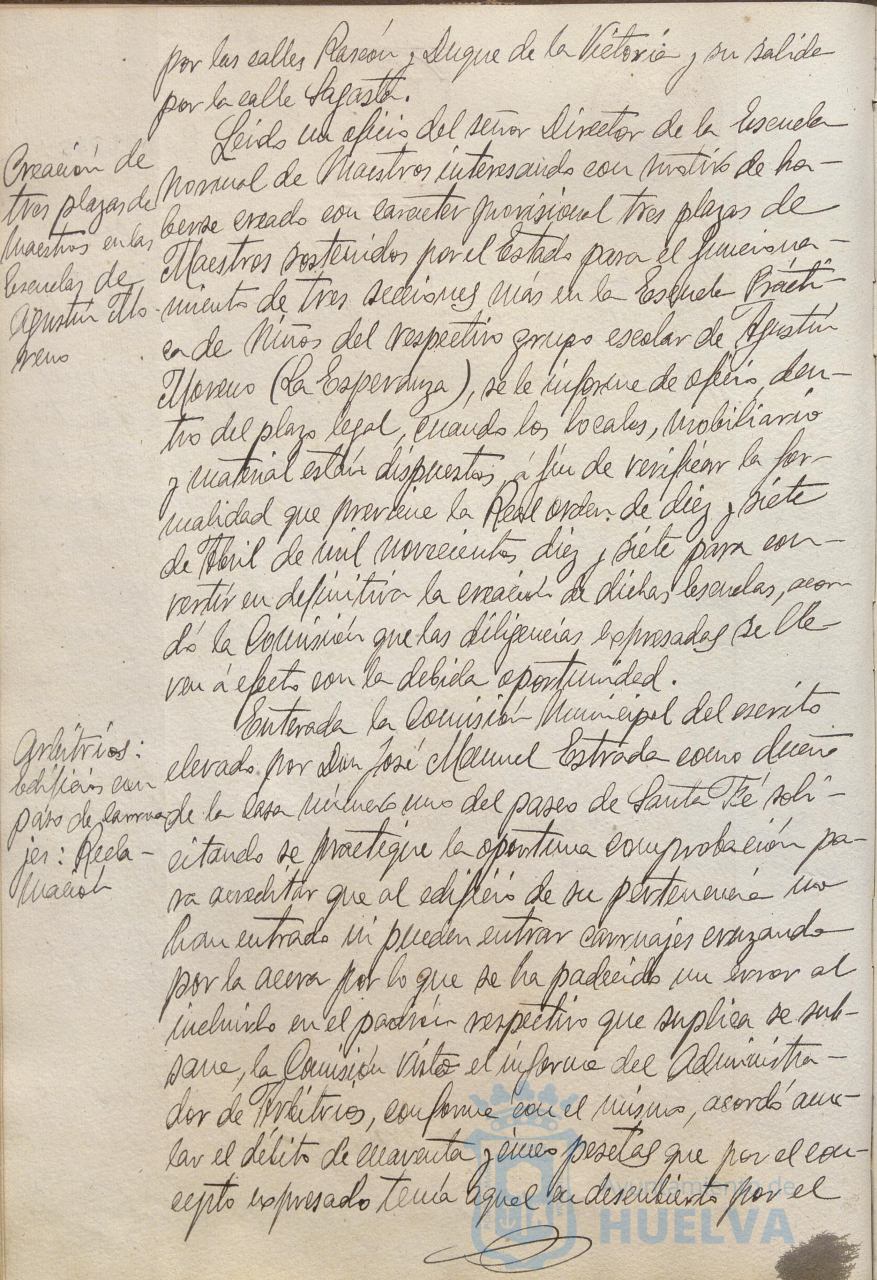 por las calles Rascón y Duque de la Victoria y su salida
por la calle Sagasta.
Creación de
tres plazas de
Maestros en las
Escuelas de
Agustín Mo-
reno
Leido un oficio del señor Director de la Escuela
Normal de Maestros interesando con motivo de ha-
berse creado con carácter provisional tres plazas de
Maestros sostenidos por el Estado para el funciona-
miento de tres secciones más en la Escuela Prácti-
ca de Niños del respectivo grupo escolar de Agustín
Moreno (La Esperanza), se le informe de oficio, den-
tro del plazo legal, cuando los locales, mobiliario
y material están dispuestos, á fin de verificar la for-
malidad que previene la Real orden de diez y siete
de Abril de mil novecientos diez y siete para con-
vertir en definitiva la creación de dichas escuelas, acor-
dó la Comisión que las diligencias expresadas se lle-
ven á efecto con la debida oportunidad.
Arbitrios:
Edificios con
paso de carrua-
jes: Recla-
mación
Enterada la Comisión Municipal del escrito
elevado por Don José Manuel Estrada como dueño
de la casa número uno del paseo de Santa Fé soli-
citando se practique la oportuna comprobación pa-
ra acreditar que al edificio de su pertenencia no
han entrado ni pueden entrar carruajes cruzando
por la acera por lo que se ha padecido un error al
incluirlo en el padrón respectivo que suplica se sub-
sane, la Comisión visto el informe del Administra-
dor de Arbitrios, conforme con el mismo, acordó anu-
lar el débito de cuarenta y cinco pesetas que por el con-
cepto expresado tenía aquel en descubierto por el
Ayuntamiento de
HUELVA